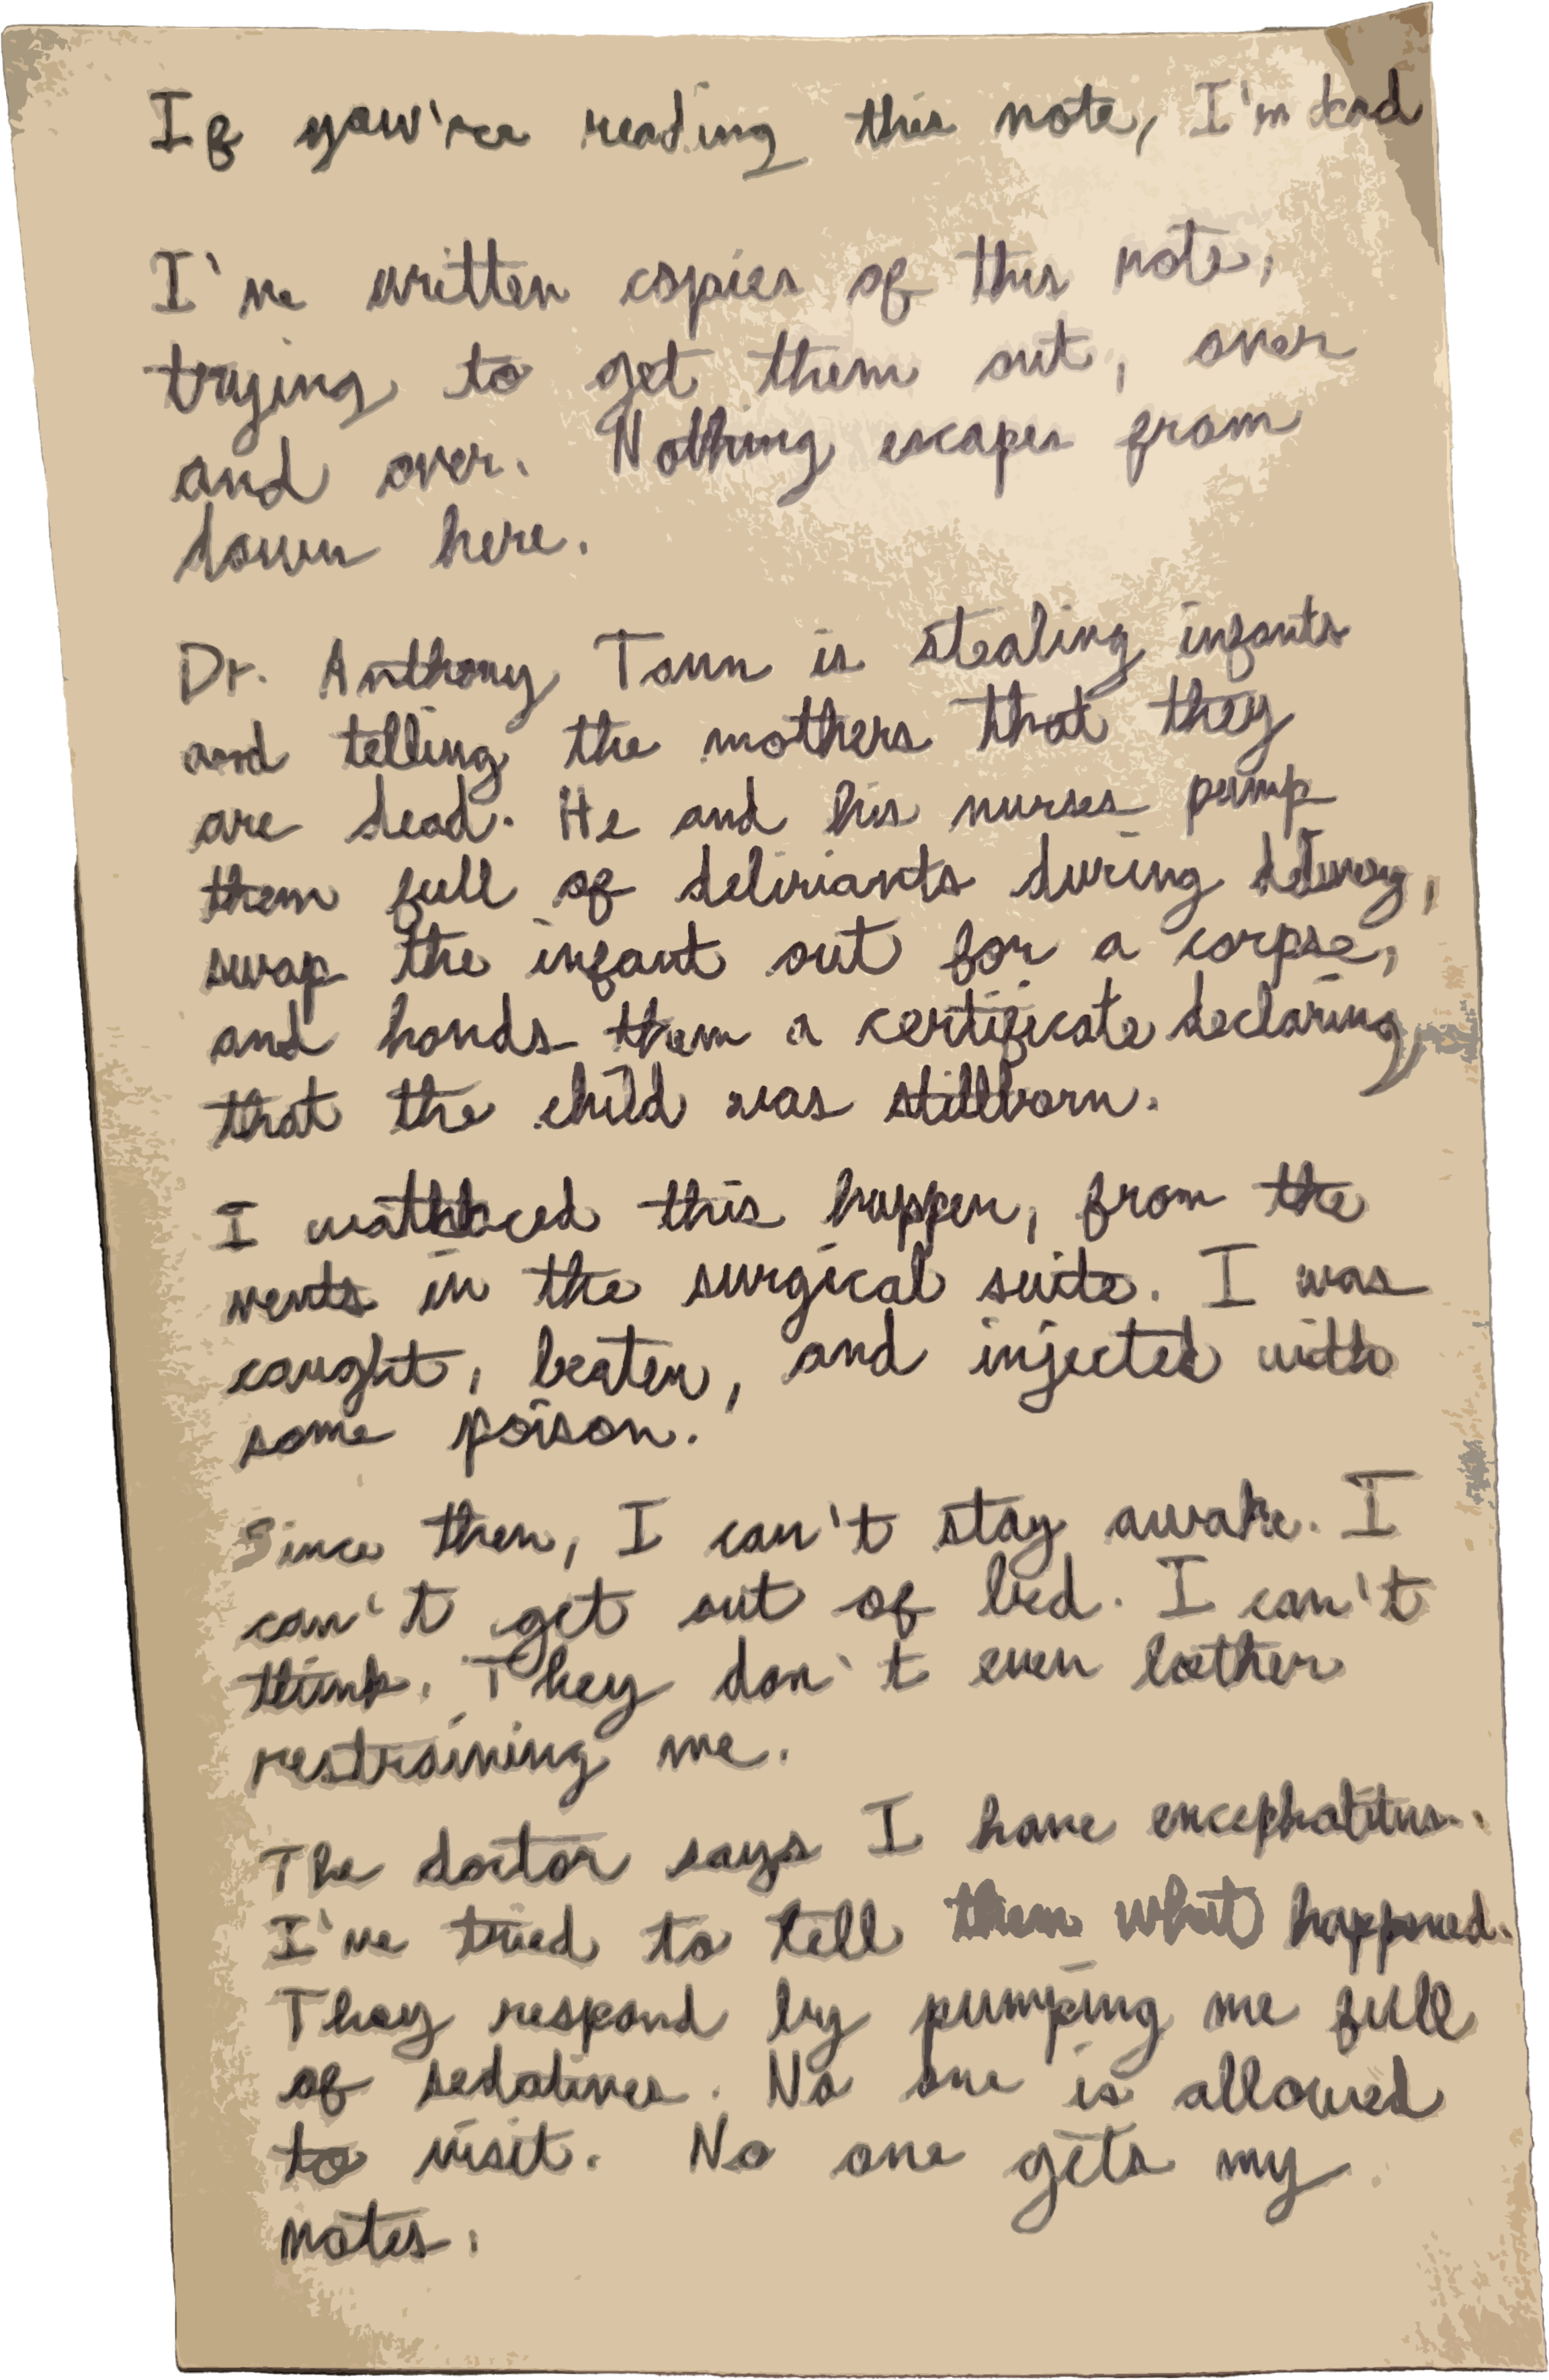 If you're reading this note, I'm dead
I've written copies of this note,
trying to get them out, over
and over. Nothing escapes from
down here.
Dr. Anthony Town is stealing infants
and telling the mothers that they
are dead. He and his nurses pump
them full of deliriants during delivery,
swap the infant out for a corpse,
and hands them a certificate declaring
that the child was stillborn.
I this happen, from the
vents in the surgical suite. I was
caught, beaten, and injected with
some poison.
Since then, I can't stay awake. I
can't get out of bed. I can't
think. They don't even bother
restraining me.
The doctor says I have encephalitus.
I've tried to tell them what happened.
They respond by pumping me full
of sedatives. No one is allowed
to visit. No one gets my
notes.